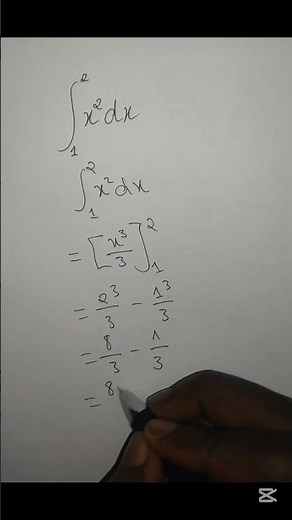 ∫₁² x² dx
∫₁² x² dx
= [x³/3]₁²
= 2³/3 − 1³/3
= 8/3 − 1/3
= 8